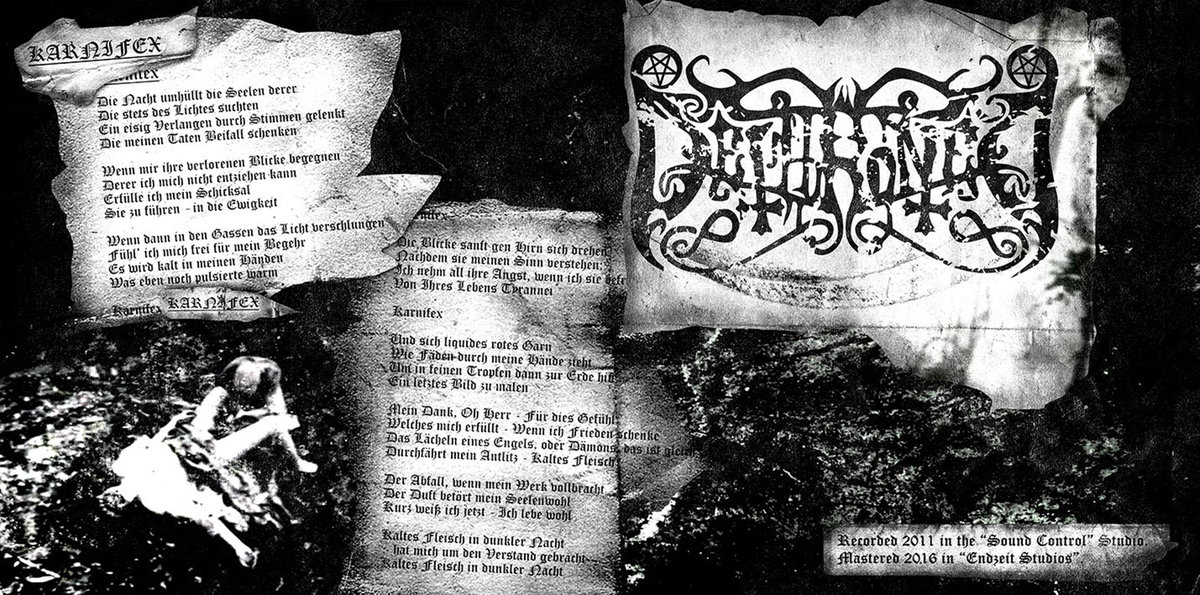 KARNIFEX
Karnifex
Die Nacht umhüllt die Seelen derer
Die stets des Lichtes suchten
Ein eisig Verlangen durch Stimmen gelenkt
Die meinen Taten Beifall schenken
Wenn mir ihre verlorenen Blicke begegnen
Derer ich mich nicht entziehen kann
Erfülle ich mein Schicksal
Sie zu führen - in die Ewigkeit
Wenn dann in den Gassen das Licht verschlungen
Fühl' ich mich frei für mein Begehr
Es wird kalt in meinen Händen
Was eben noch pulsierte warm
Karnifex KARNIFEX
Karnifex
Die Blicke sanft gen Hirn sich drehen
Nachdem sie meinen Sinn verstehen;
Ich nehm all ihre Angst, wenn ich sie befr
Von Ihres Lebens Tyrannei
Karnifex
Und sich liquides rotes Garn
Wie Fäden durch meine Hände zieht
Um in feinen Tropfen dann zur Erde hin
Ein letztes Bild zu malen
Mein Dank, Oh Herr - Für dies Gefühl
Welches mich erfüllt - Wenn ich Frieden schenke
Das Lächeln eines Engels, oder Dämons, das ist gleich
Durchfährt mein Antlitz - Kaltes Fleisch
Der Abfall, wenn mein Werk vollbracht
Der Duft betört mein Seelenwohl
Kurz weiß ich jetzt - Ich lebe wohl
Kaltes Fleisch in dunkler Nacht
hat mich um den Verstand gebracht
Kaltes Fleisch in dunkler Nacht
Recorded 2011 in the "Sound Control" Studio.
Mastered 2016 in "Endzeit Studios".